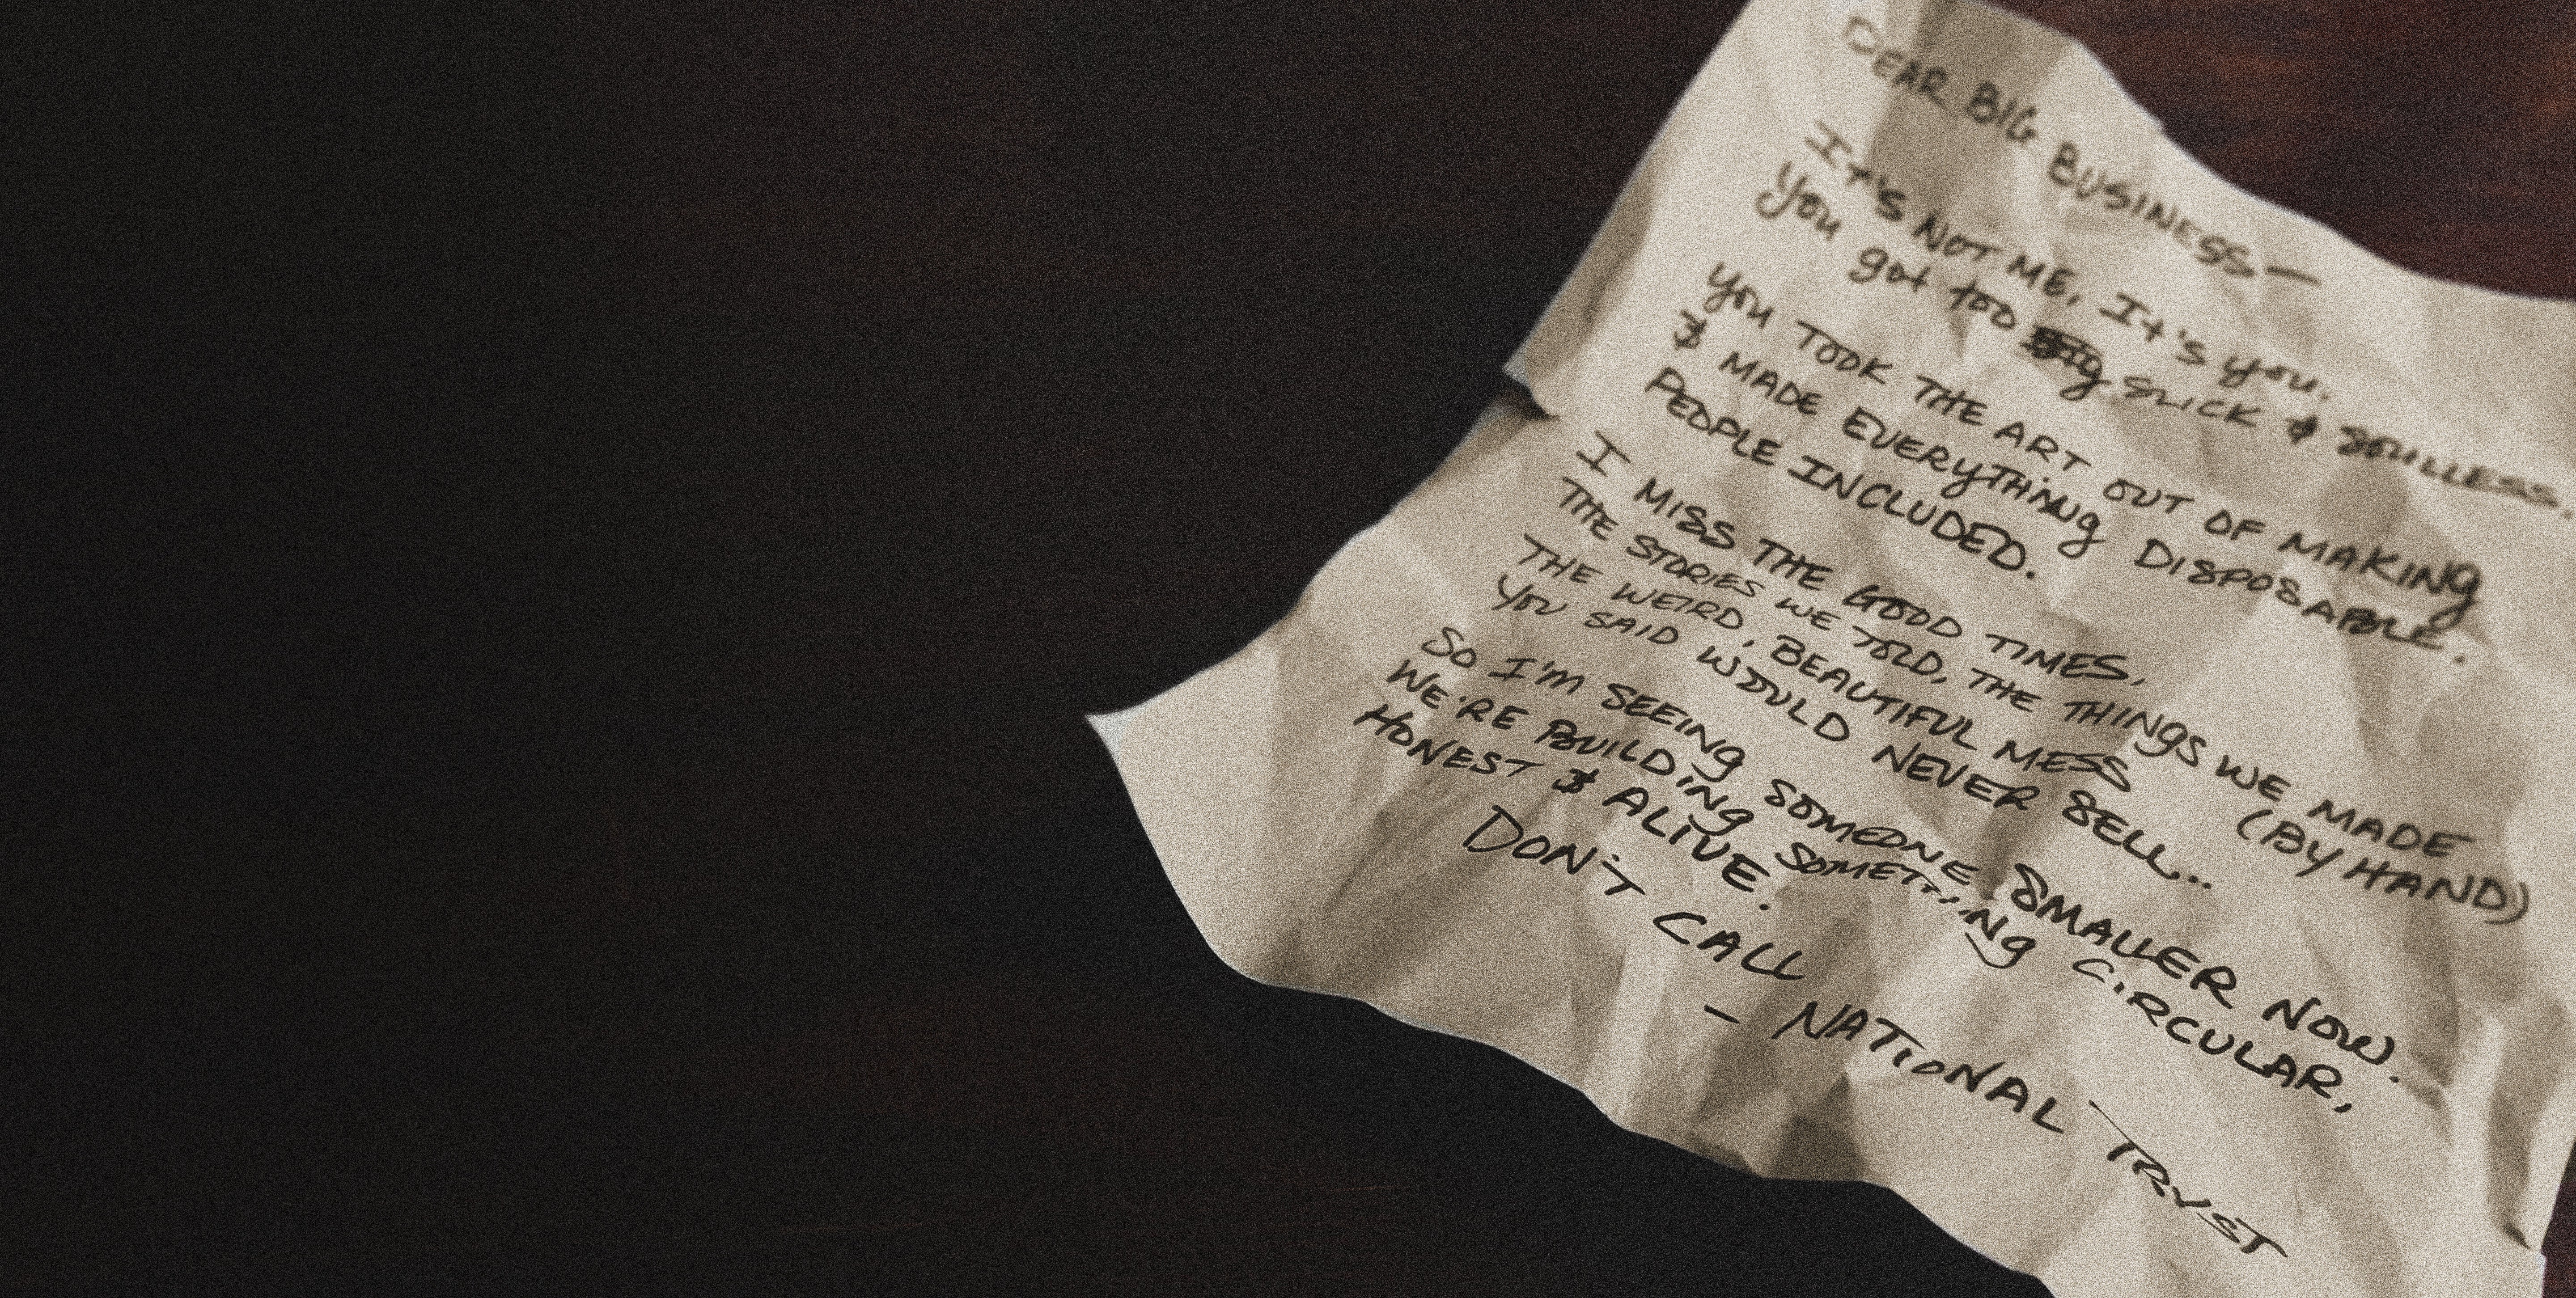 DEAR BIG BUSINESS—
IT'S NOT ME, It's you.
You got too Big SLICK & SOULLESS.
you TOOK THE ART OUT OF MAKING
& MADE EVERYTHING DISPOSABLE.
PEOPLE INCLUDED.
I MISS THE GOOD TIMES,
THE STORIES WE TOLD, THE THINGS WE MADE
THE WEIRD, BEAUTIFUL MESS (BY HAND)
YOU SAID WOULD NEVER SELL...
SO I'M SEEING SOMEONE SMALLER NOW.
WE'RE BUILDING SOMETHING CIRCULAR,
HONEST & ALIVE.
DON'T CALL
— NATIONAL TRYST